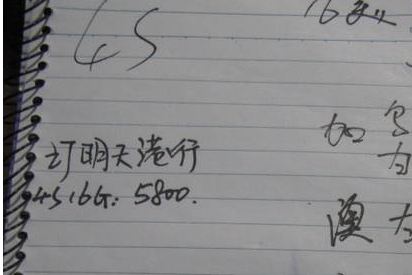 4S
订明天港行
4S 16G: 5800.
加
澳